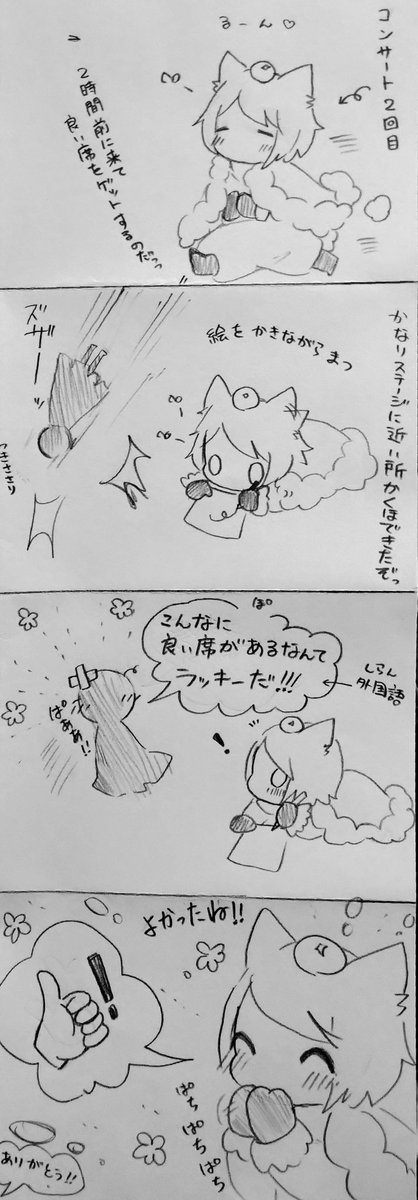 コンサート2回目
るーん♡
2時間前に来て
良い席をゲットするのだっっ
かなりステージに近い所かくほできたぞっ
絵をかきながらまつ
ズザーーッ
こんなに
良い席があるなんて
ラッキーだ!!!
しらん
外国語
ぱあぁ!!
!
よかったね!!
!
ぱち
ぱち
ぱち
ありがとう!!